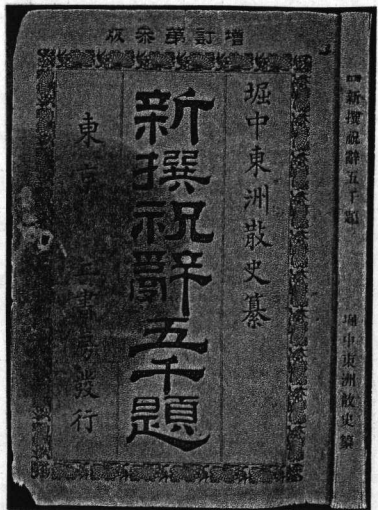 増訂第参版
堀中東洲散史纂
新撰祝辞五千題
東 書 發行
新撰祝辭五千題
堀中東洲散史纂